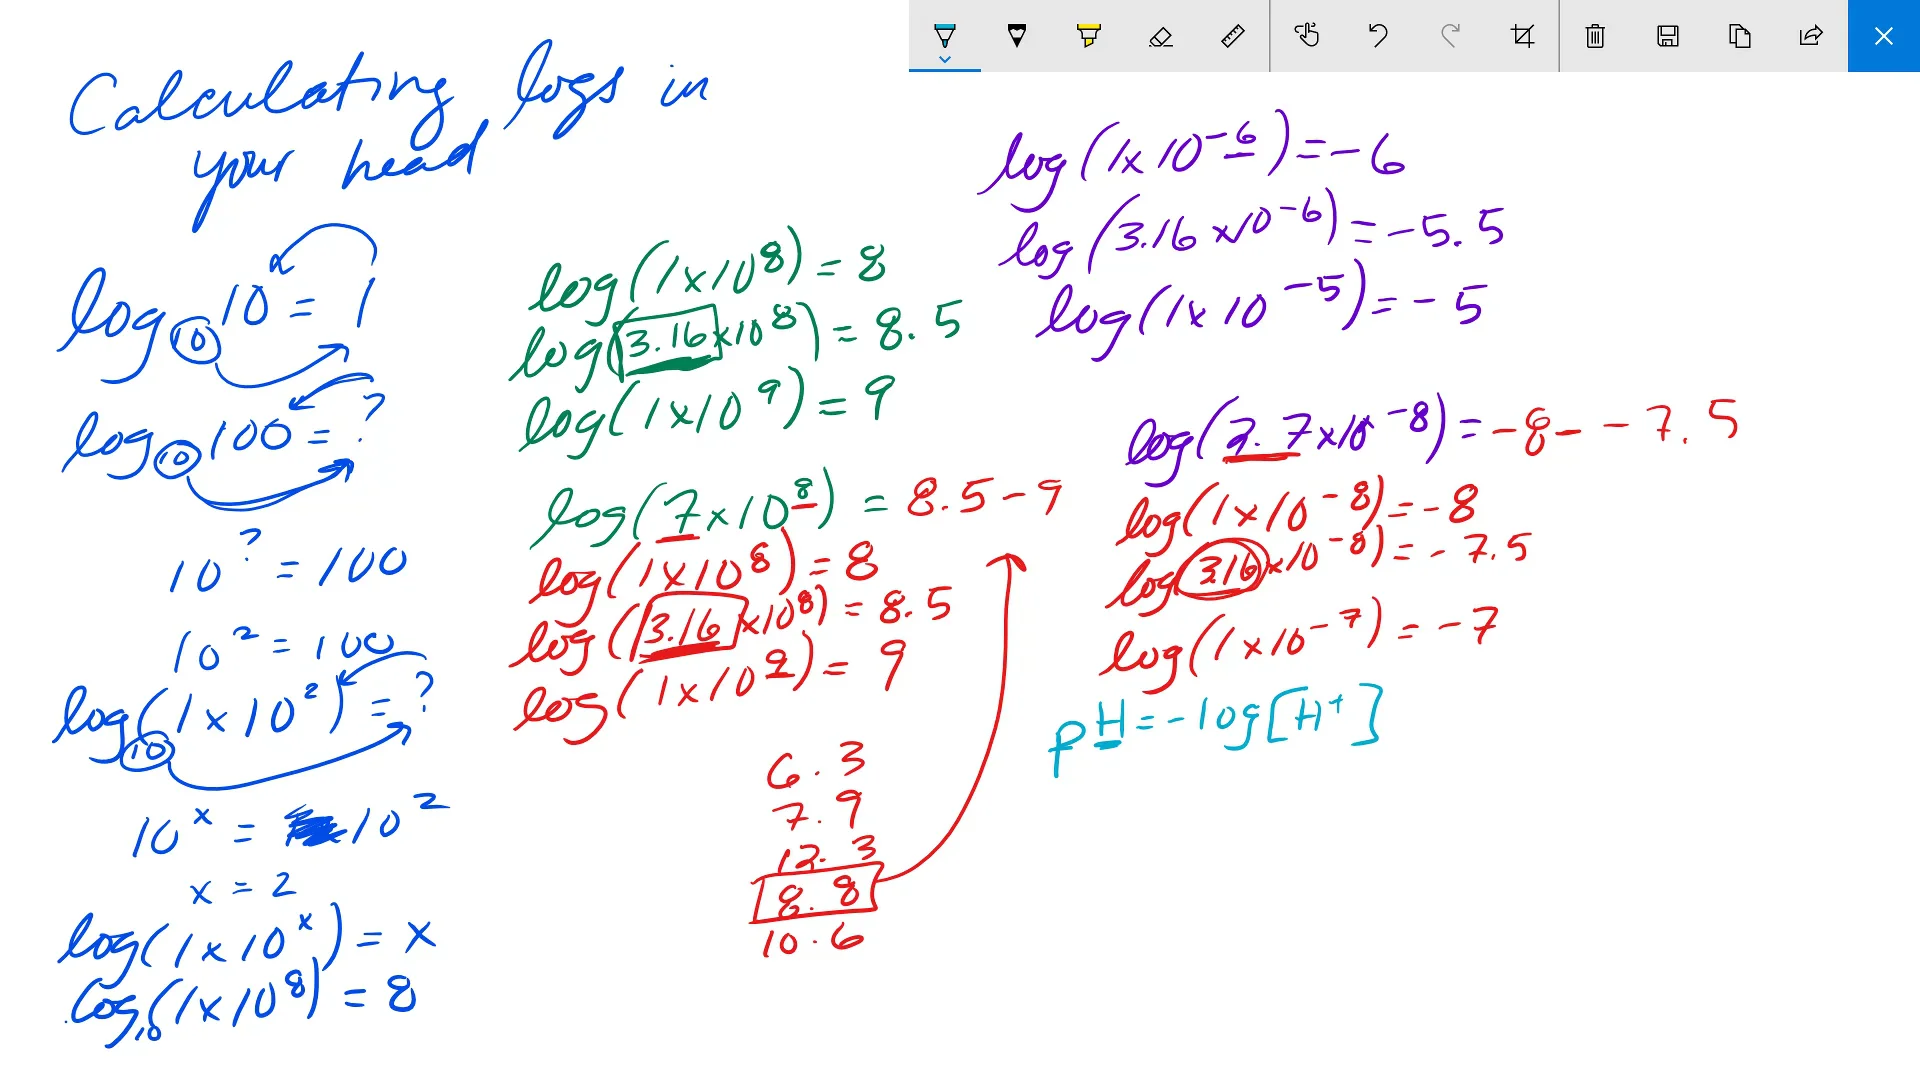 Calculating logs in
your head
log₁₀ 10 = 1
log₁₀ 100 = ?
10^? = 100
10² = 100
log₁₀(1 x 10²) = ?
10ˣ = 10²
x = 2
log(1 x 10ˣ) = x
log₁₀(1 x 10⁸) = 8
log(1 x 10⁸) = 8
log(3.16 x 10⁸) = 8.5
log(1 x 10⁹) = 9
log(7 x 10⁸) = 8.5 - 9
log(1 x 10⁸) = 8
log(3.16 x 10⁸) = 8.5
log(1 x 10⁹) = 9
6.3
7.9
12.3
8.8
10.6
log(1 x 10⁻⁶) = -6
log(3.16 x 10⁻⁶) = -5.5
log(1 x 10⁻⁵) = -5
log(2.7 x 10⁻⁸) = -8 - -7.5
log(1 x 10⁻⁸) = -8
log(3.16 x 10⁻⁸) = -7.5
log(1 x 10⁻⁷) = -7
pH = -log[H⁺]